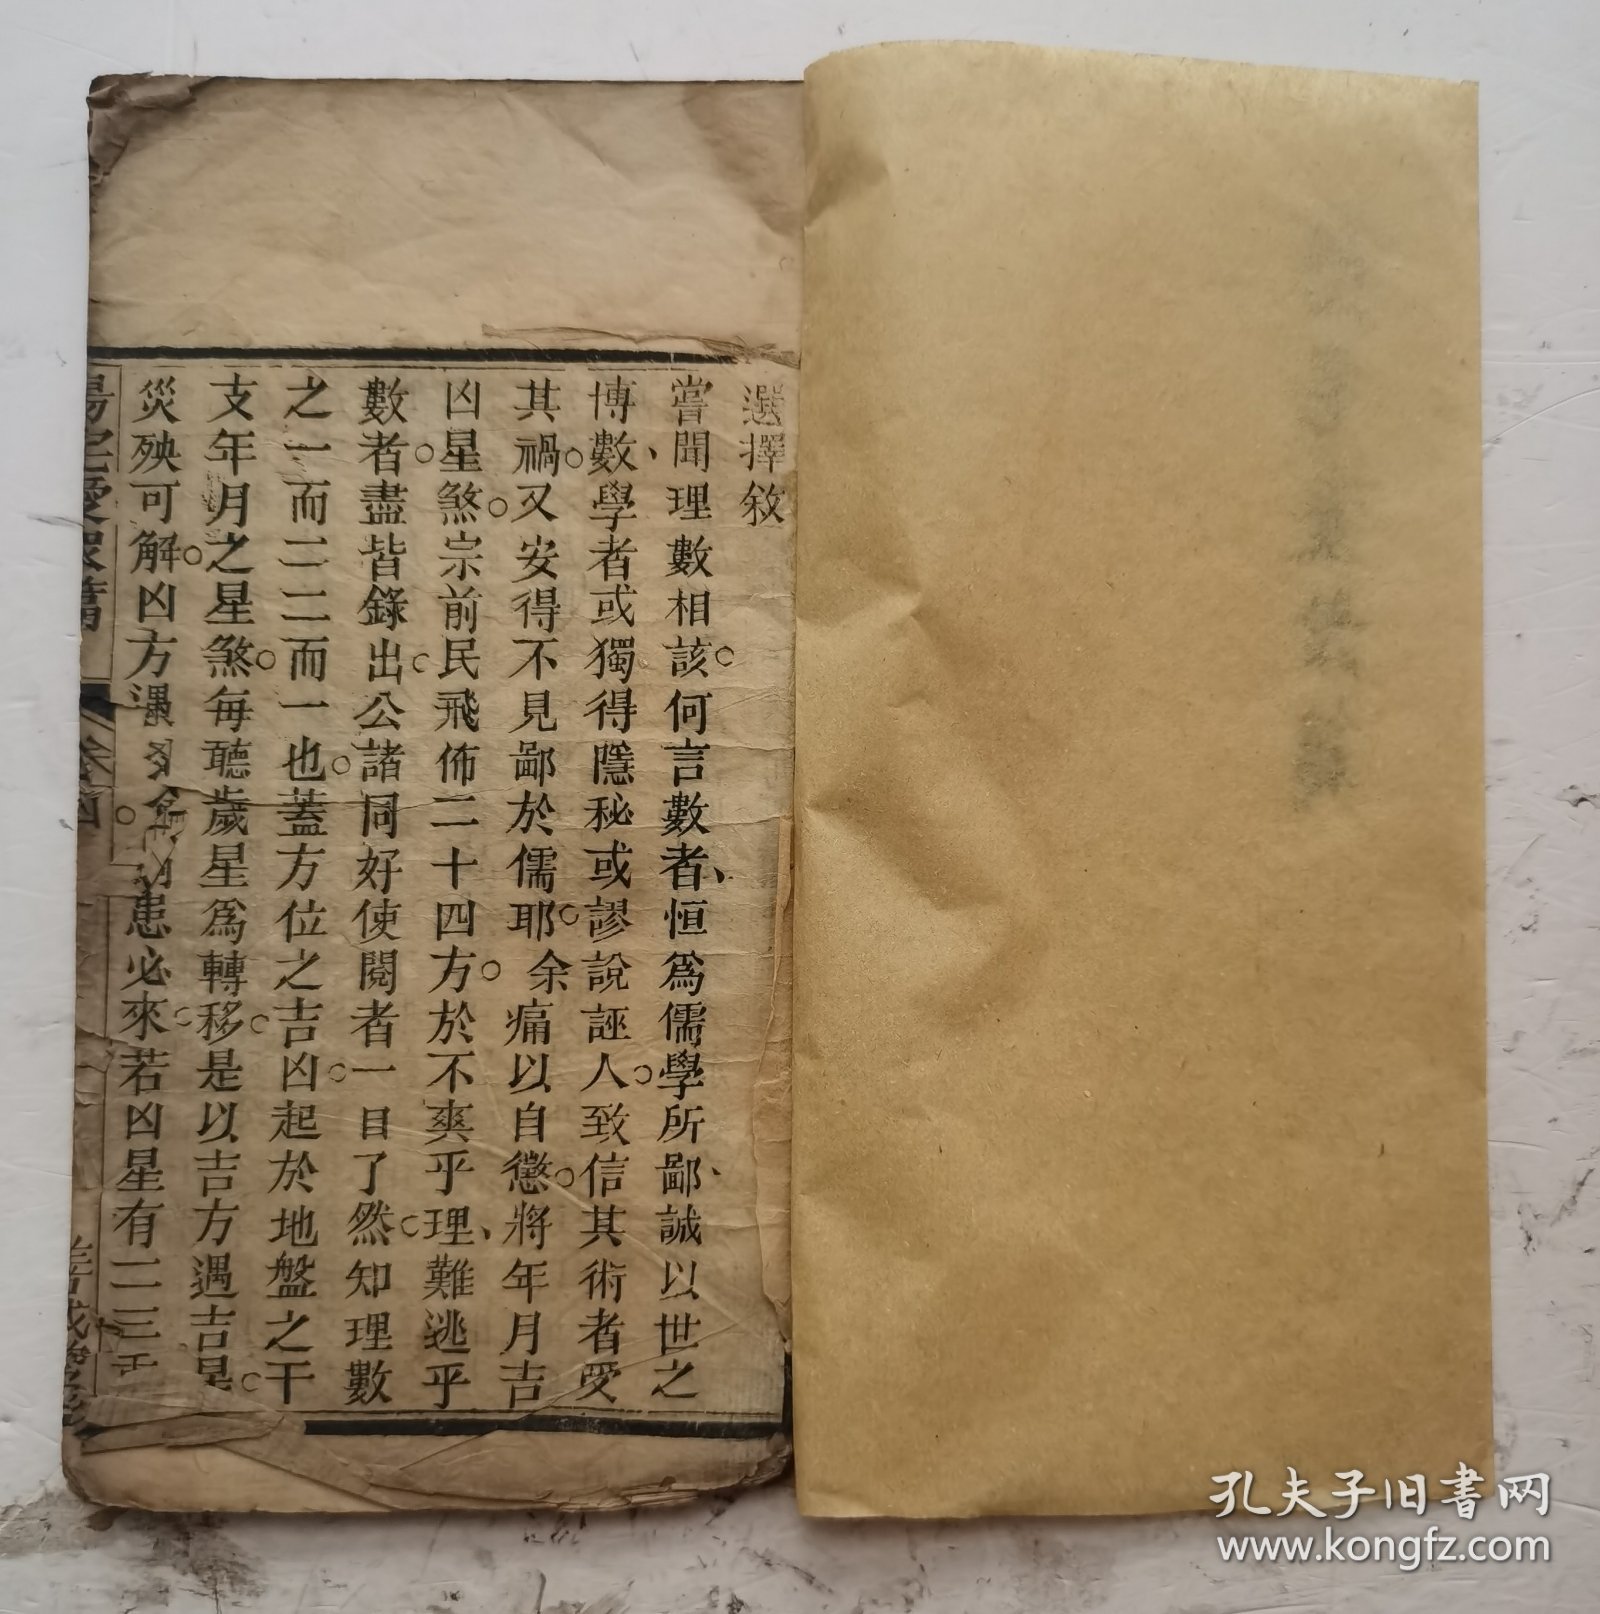 選擇敘
嘗聞理數相該。何言數者、恒爲儒學所鄙、誠以世之
博數、學者或獨得隱秘或謬說誣人。致信其術者受
其禍。又安得不見鄙於儒耶。余痛以自懲。將年月吉
凶星煞。宗前民飛佈二十四方。於不爽乎理、難逃乎
數者。盡皆錄出。公諸同好使閱者一目了然。知理數
之一而二二而一也。蓋方位之吉凶。起於地盤之干
支年月之星煞。每聽歲星爲轉移。是以吉方遇吉星。
災殃可解。凶方遇 患必來。若凶星有二三
陽宅愛衆篇
卷四
孔夫子旧書网
www.kongfz.com